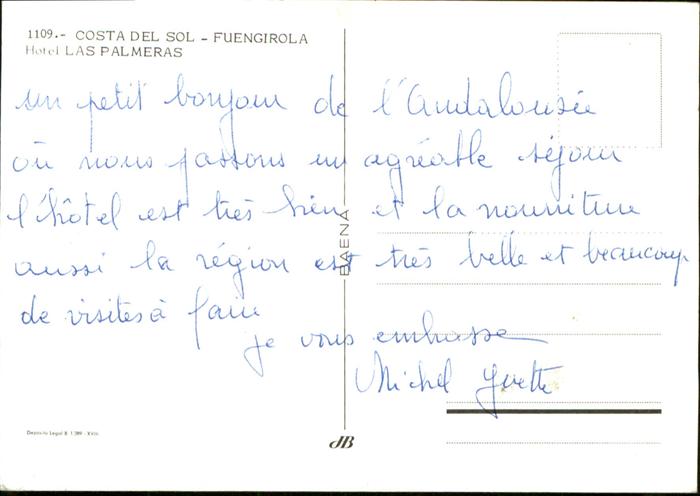 1109.- COSTA DEL SOL - FUENGIROLA
Hotel LAS PALMERAS
un petit bonjour de l'Andalousie
où nous passons un agréable séjour
l'hôtel est très bien et la nourriture
aussi la région est très belle et beaucoup
de visites à faire
je vous embrasse
Michel Yvette
BAENA
Deposito Legal B. 1.389 - XVIII
JB